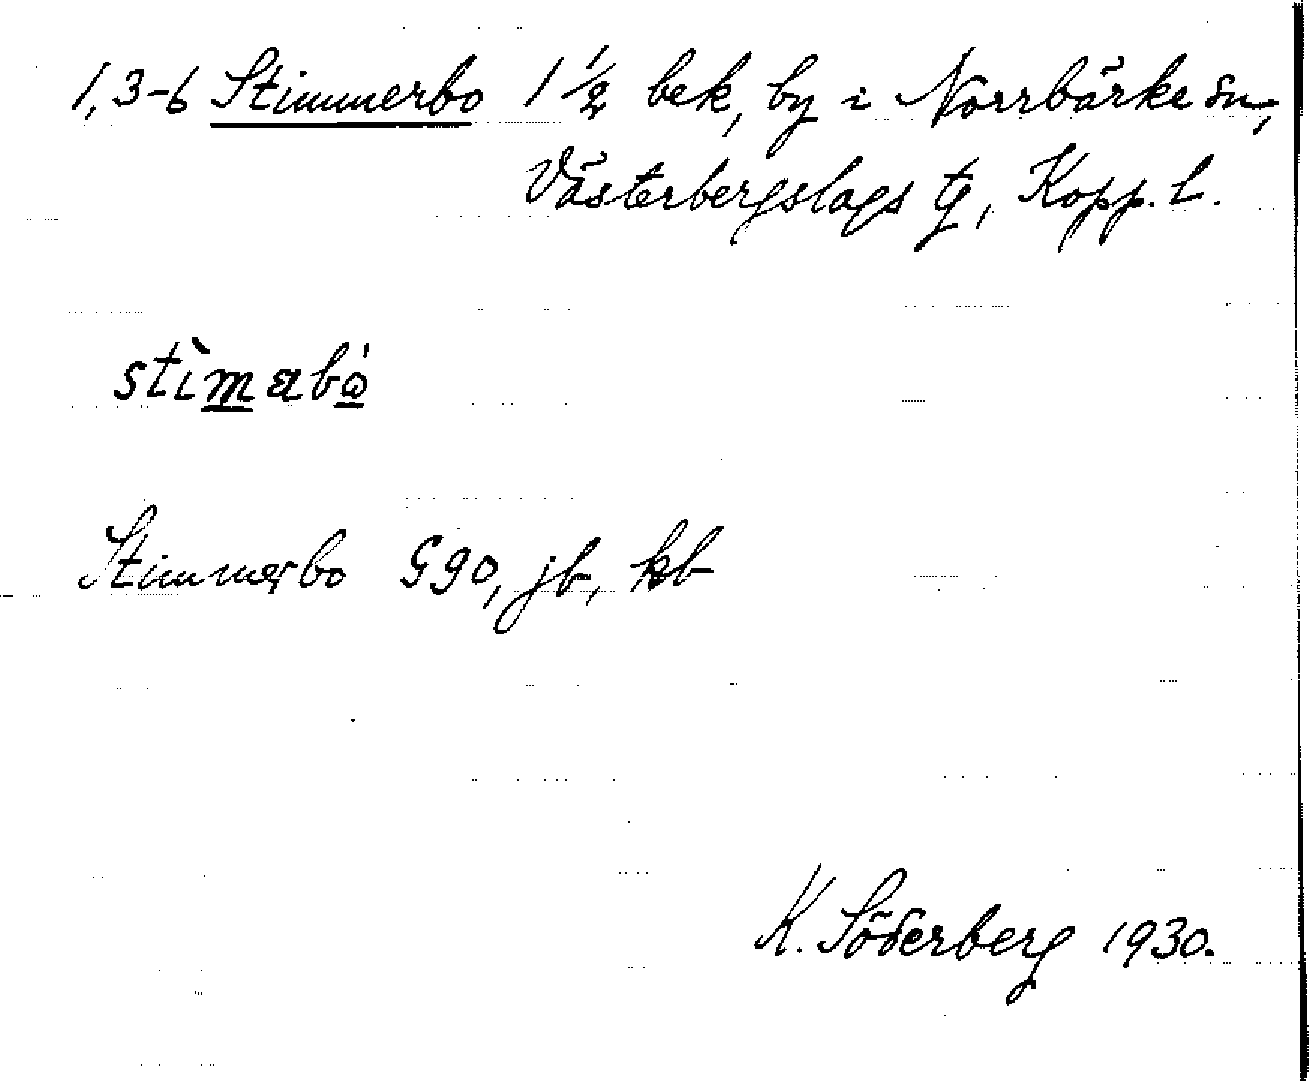 1,3-6 Stimmerbo 1 ½ bek, by i Norrbärke sn,
Västerbergslags tg, Kopp. l.
stìmabó
Stimmerbo G90, jb, kb
K. Söderberg 1930.